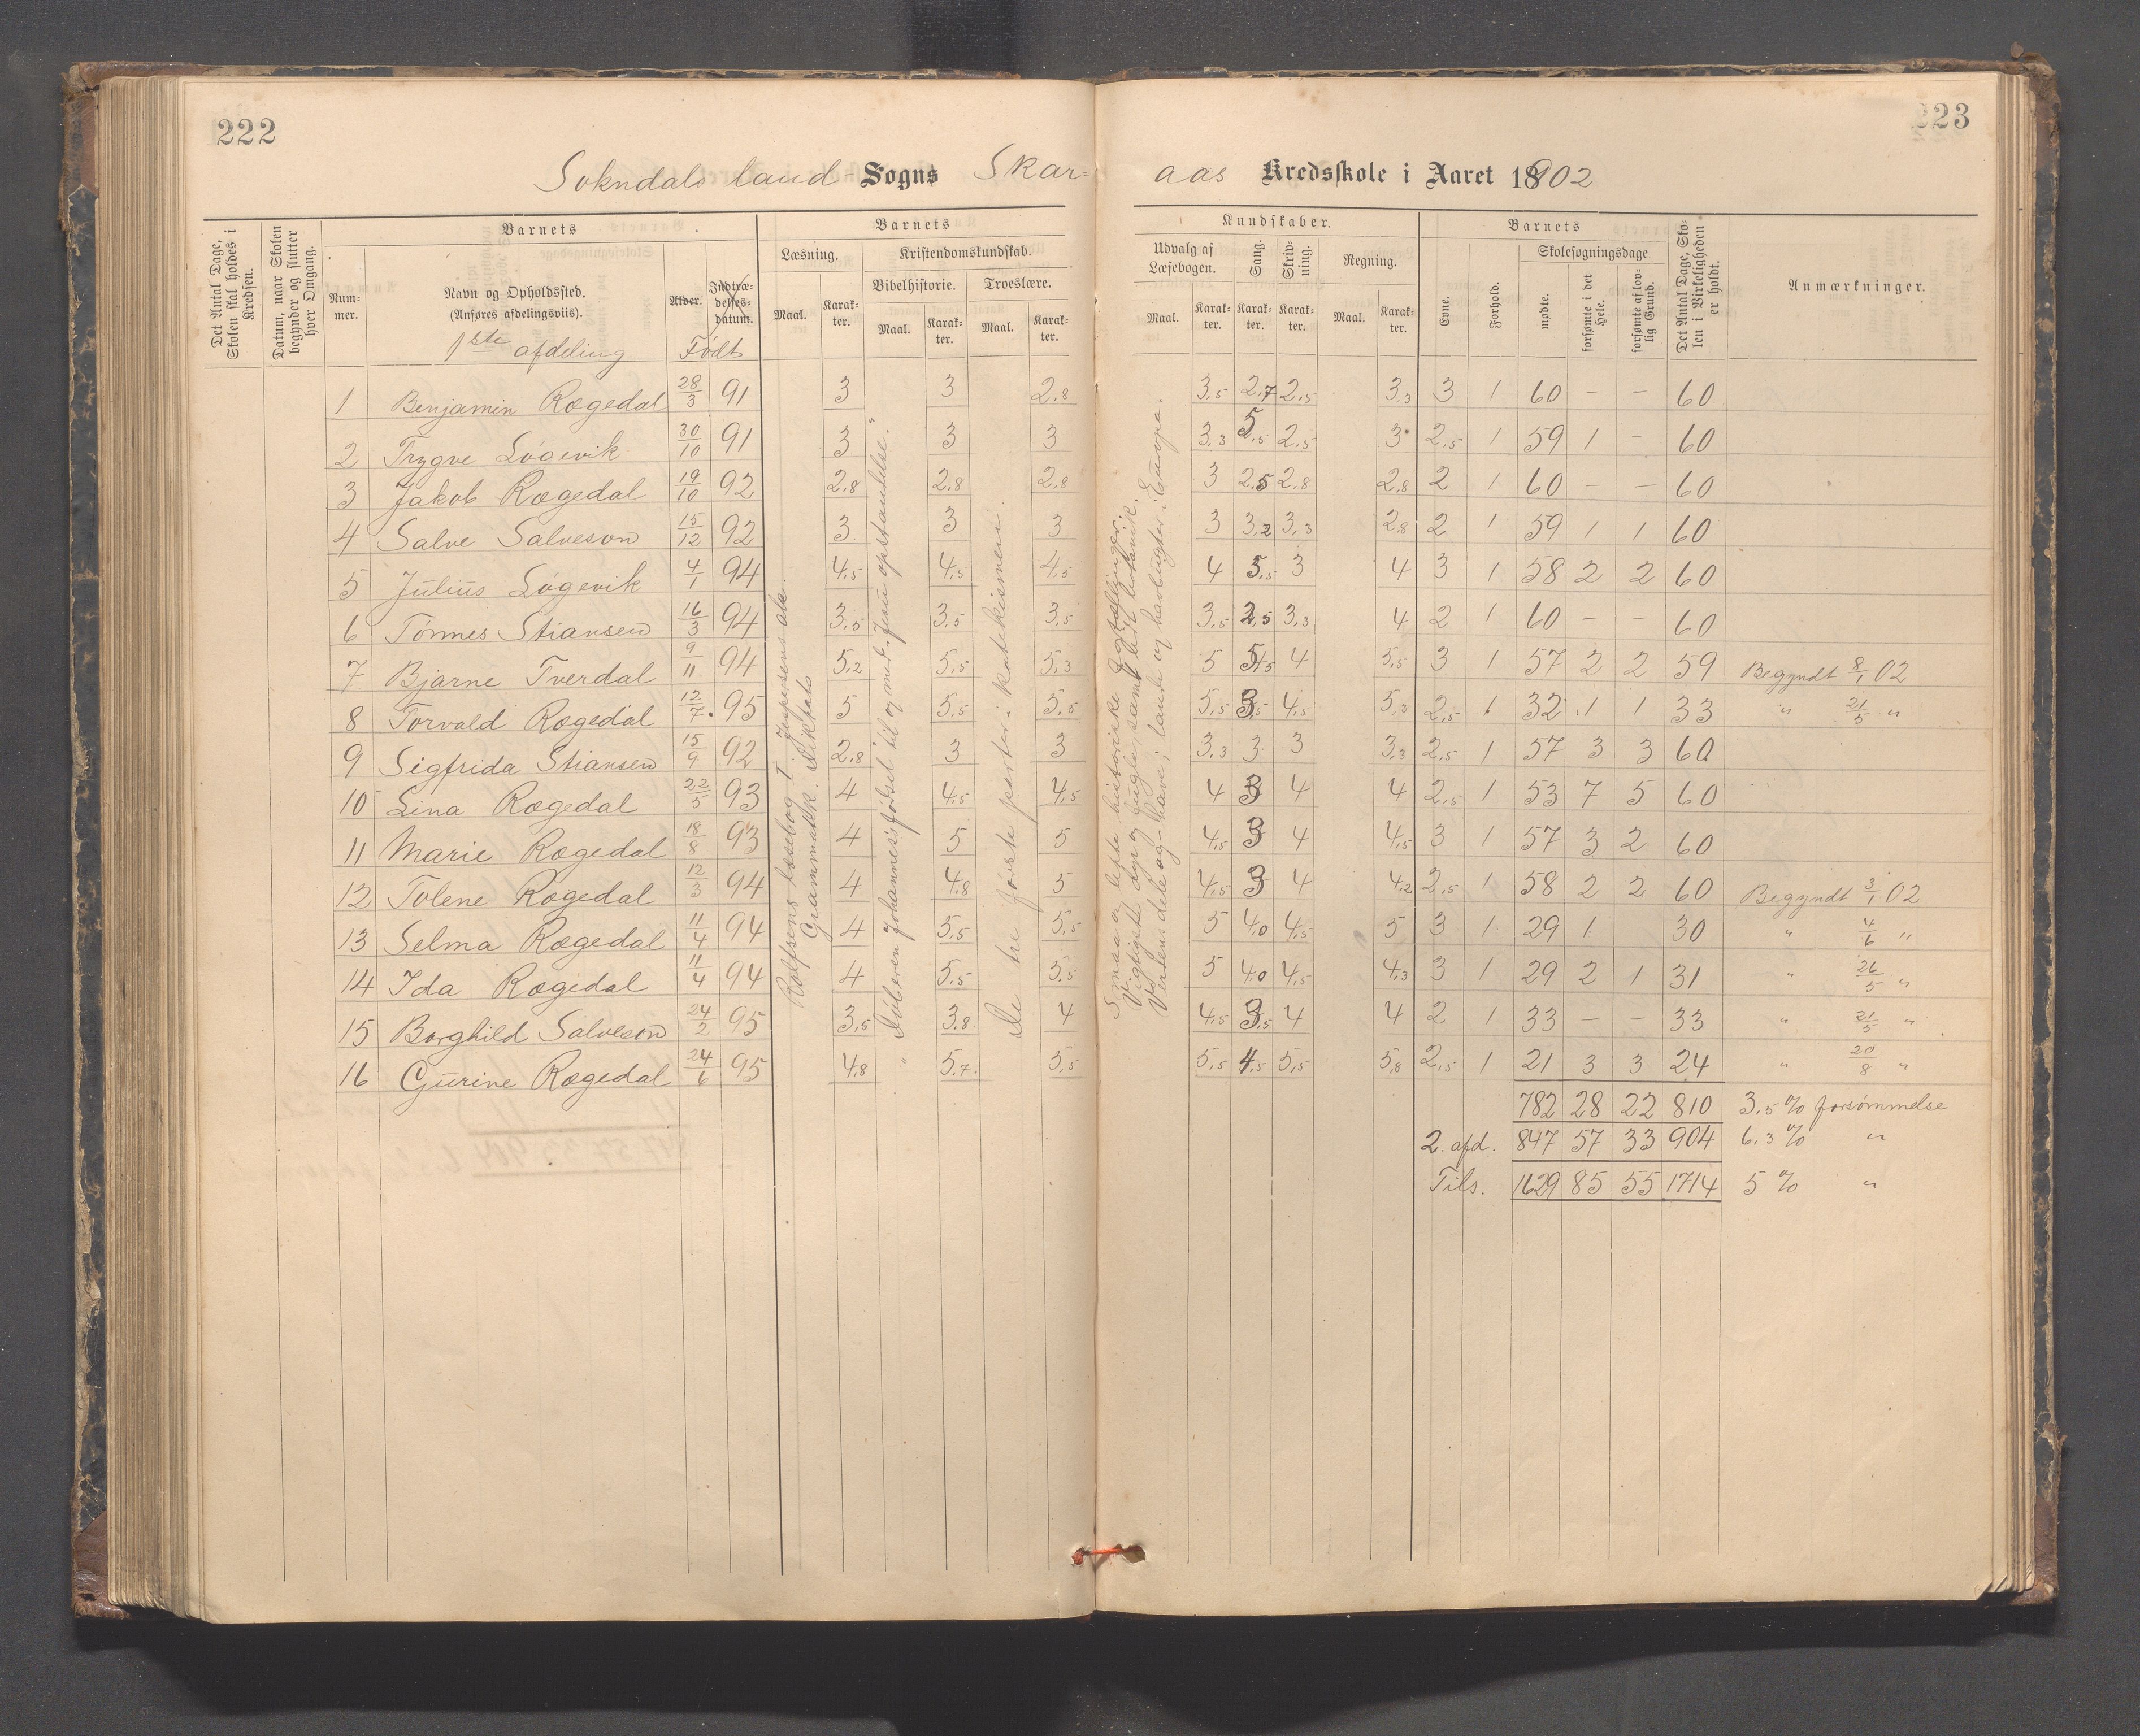 222
223
Sokndals land Sogns Skar-
aas Kredsskole i Aaret 18902
Det Antal Dage, Skolen skal holdes i Kredsen.
Datum, naar Skolen begynder og slutter hver Omgang.
Barnets
Num-
mer.
Navn og Opholdssted.
(Anføres afdelingsviis).
1ste afdeling
Alder.
Indtræ-
delses-
datum.
Født
Barnets
Læsning.
Maal.
Karak-
ter.
Kristendomskundskab.
Bibelhistorie.
Maal.
Karak-
ter.
Troeslære.
Maal.
Karak-
ter.
Kundskaber.
Udvalg af
Læsebogen.
Maal.
Karak-
ter.
Sang.
Karak-
ter.
Skriv-
ning.
Karak-
ter.
Regning.
Maal.
Karak-
ter.
Barnets
Evne.
Forhold.
Skolesøgningsdage.
mødte.
forsømte i det Hele.
forsømte af lov-
lig Grund.
Det Antal Dage, Sko-
len i Virkeligheden
er holdt.
Anmærkninger.
1 Benjamin Rægedal 28/3 91 3 3 2,8 3,5 2,7 2,5 3,3 3 1 60 – – 60
2 Trygve Løgevik 30/10 91 3 3 3 3,3 5,5 2,5 3 2,5 1 59 1 – 60
3 Jakob Rægedal 19/10 92 2,8 2,8 2,8 3 2,5 2,8 2,8 2 1 60 – – 60
4 Salve Salveson 15/12 92 3 3 3 3 3,2 3,3 2,8 2 1 59 1 1 60
5 Julius Løgevik 4/1 94 4,5 4,5 4,5 4 5,5 3 4 3 1 58 2 2 60
6 Tønnes Stiansen 16/3 94 3,5 3,5 3,5 3,5 2,5 3,3 4 2 1 60 – – 60
7 Bjarne Tverdal 9/11 94 5,2 5,5 5,3 5 5,5 4 5,5 3 1 57 2 2 59 Begyndt 8/1 02
8 Torvald Rægedal 12/7 95 5 5,5 5,5 5,5 3,5 4,5 5,3 2,5 1 32 1 1 33 " 21/5 "
9 Sigfrida Stiansen 15/9 92 2,8 3 3 3,3 3 3 3,3 2,5 1 57 3 3 60
10 Lina Rægedal 22/5 93 4 4,5 4,5 4 3 4 4 2,5 1 53 7 5 60
11 Marie Rægedal 18/8 93 4 5 5 4,5 3 4 4,5 3 1 57 3 2 60
12 Tolene Rægedal 12/3 94 4 4,8 5 4,5 3 4 4,2 2,5 1 58 2 2 60 Begyndt 3/1 02
13 Selma Rægedal 11/4 94 4 5,5 5,5 5 4,0 4,5 5 3 1 29 1 30 " 4/6 "
14 Ida Rægedal 11/4 94 4 5,5 5,5 5 4,0 4,5 4,3 3 1 29 2 1 31 " 26/5 "
15 Borghild Salveson 24/2 95 3,5 3,8 4 4,5 3,5 4 4 2 1 33 – – 33 " 21/5 "
16 Gurine Rægedal 24/6 95 4,8 5,7 5,5 5,5 4,5 5,5 5,8 2,5 1 21 3 3 24 " 20/8 "
782 28 22 810 3,5 % forsømmelse
2. afd. 847 57 33 904 6,3 % "
Tils. 1629 85 55 1714 5 % "
Rolfsens læsebog I. Jespersens
Grammatikk. Diktats
"Døberen Johannes's fødsel" til og med "Jesu opstandelse".
De tre første parter i katekismen.
Smaa lette historiske
Vigtigste dyr og fugle, samt
Verdens dele og -have; lande og havbugter i Europa.